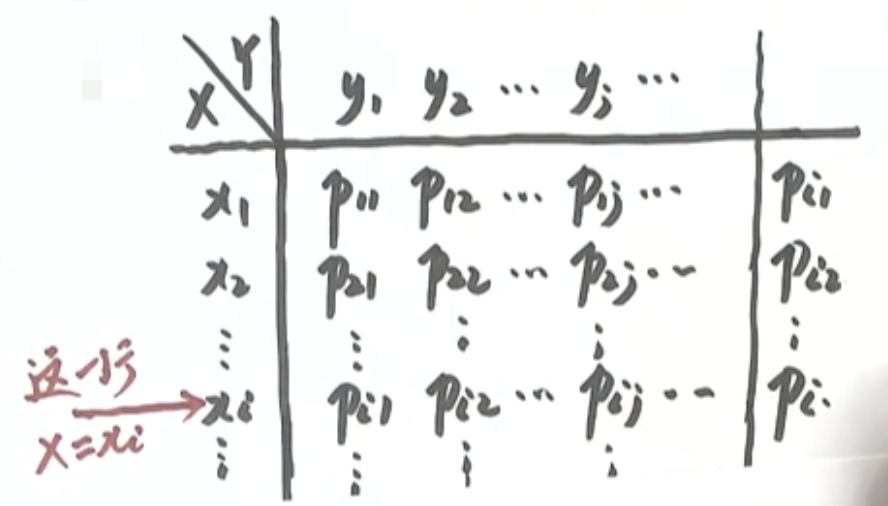 X Y y₁ y₂ ⋯ yⱼ ⋯
x₁ p₁₁ p₁₂ ⋯ p₁ⱼ ⋯ pᵢ₁
x₂ p₂₁ p₂₂ ⋯ p₂ⱼ ⋯ pᵢ₂
⋮ ⋮ ⋮ ⋮ ⋮
这一行 xᵢ pᵢ₁ pᵢ₂ ⋯ pᵢⱼ ⋯ pᵢ.
X=xᵢ
⋮ ⋮ ⋮ ⋮